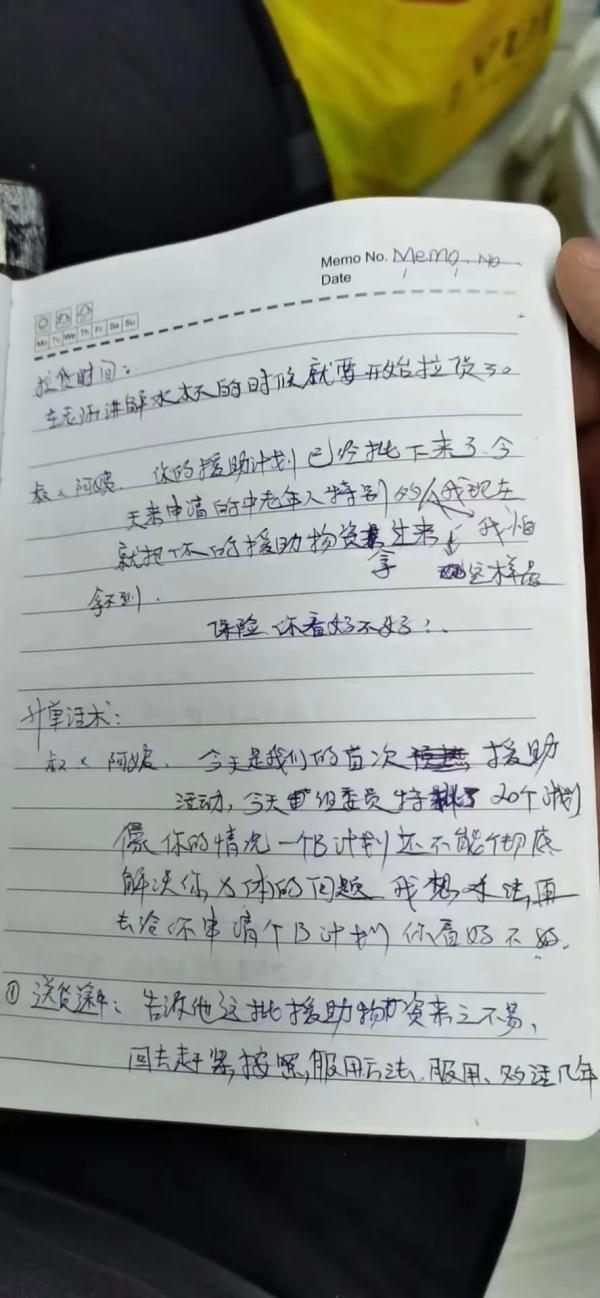 Memo No. Memo. No
Date
Mo Tu We Th Fr Sa Su
拉货时间:
老师讲解水杯的时候就要开始拉货了。
叔叔阿姨. 你的援助计划已经批下来了今
天来申请的中老年人特别的人我现在
就把你的援助物资 过来 我怕
拿 这样
拿不到.
保险. 你看好不好?.
升单话术:
叔叔阿姨. 今天是我们的首次 援助
活动, 今天 组委员特批了20个计划
像你的情况一个B计划还不能彻底
解决你身体的问题 我想办法再
去给你申请个B计划 你看好不好.
① 送货途中: 告诉他这批援助物资来之不易,
回去赶紧按照服用方法.服用、多活几年